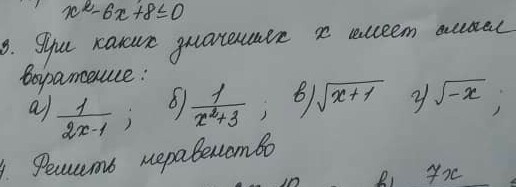 x²-6x+8≤0
3. При каких значениях x имеет смысл
выражение:
а) 1/(2x-1) ; б) 1/(x²+3) ; в) √(x+1) г) √(-x) ;
4. Решить неравенство
в) 7x